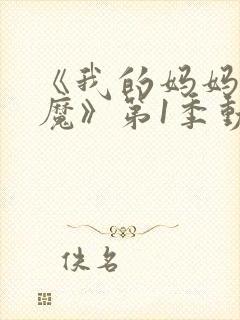 《我的妈妈
魔》第1季動
佚名